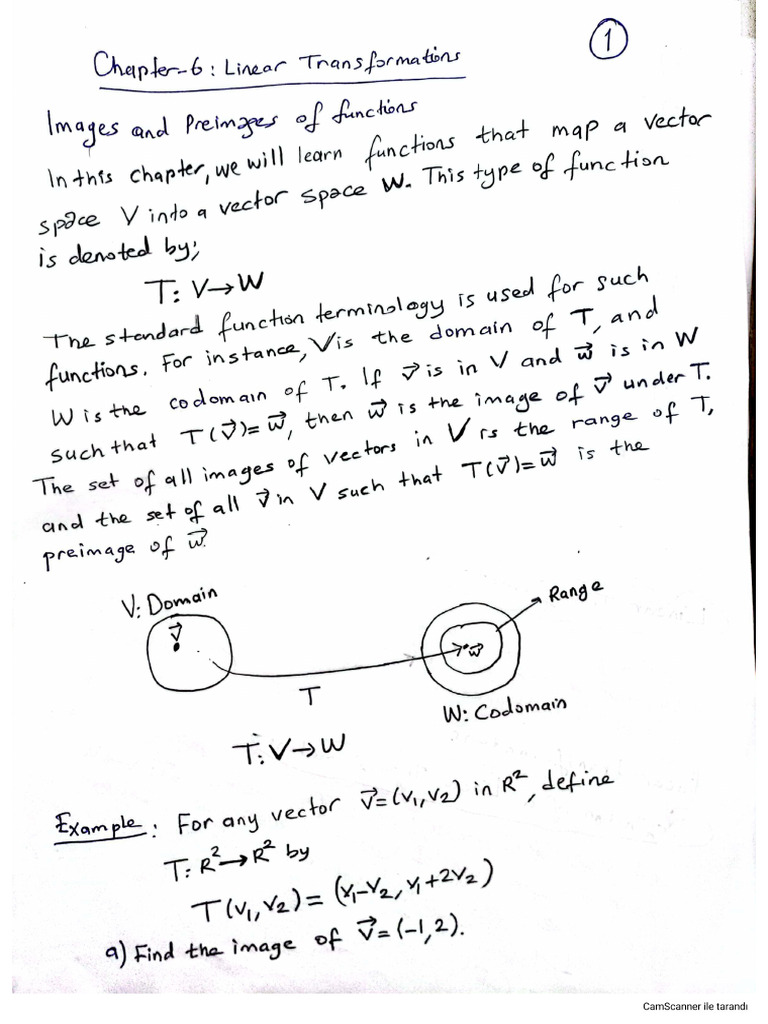 1
Chapter-6: Linear Transformations
Images and Preimages of functions
In this chapter, we will learn functions that map a vector
space V into a vector space W. This type of function
is denoted by;
T: V→W
The standard function terminology is used for such
functions. For instance, V is the domain of T, and
W is the codomain of T. If v⃗ is in V and w⃗ is in W
such that T(v⃗)=w⃗, then w⃗ is the image of v⃗ under T.
The set of all images of vectors in V is the range of T,
and the set of all v⃗ in V such that T(v⃗)=w⃗ is the
preimage of w⃗.
V: Domain
Range
v⃗
w⃗
T
W: Codomain
T: V→W
Example: For any vector v⃗=(v₁,v₂) in R², define
T: R²→R² by
T(v₁,v₂)=(v₁-v₂, v₁+2v₂)
a) Find the image of v⃗=(-1,2).
CamScanner ile tarandı